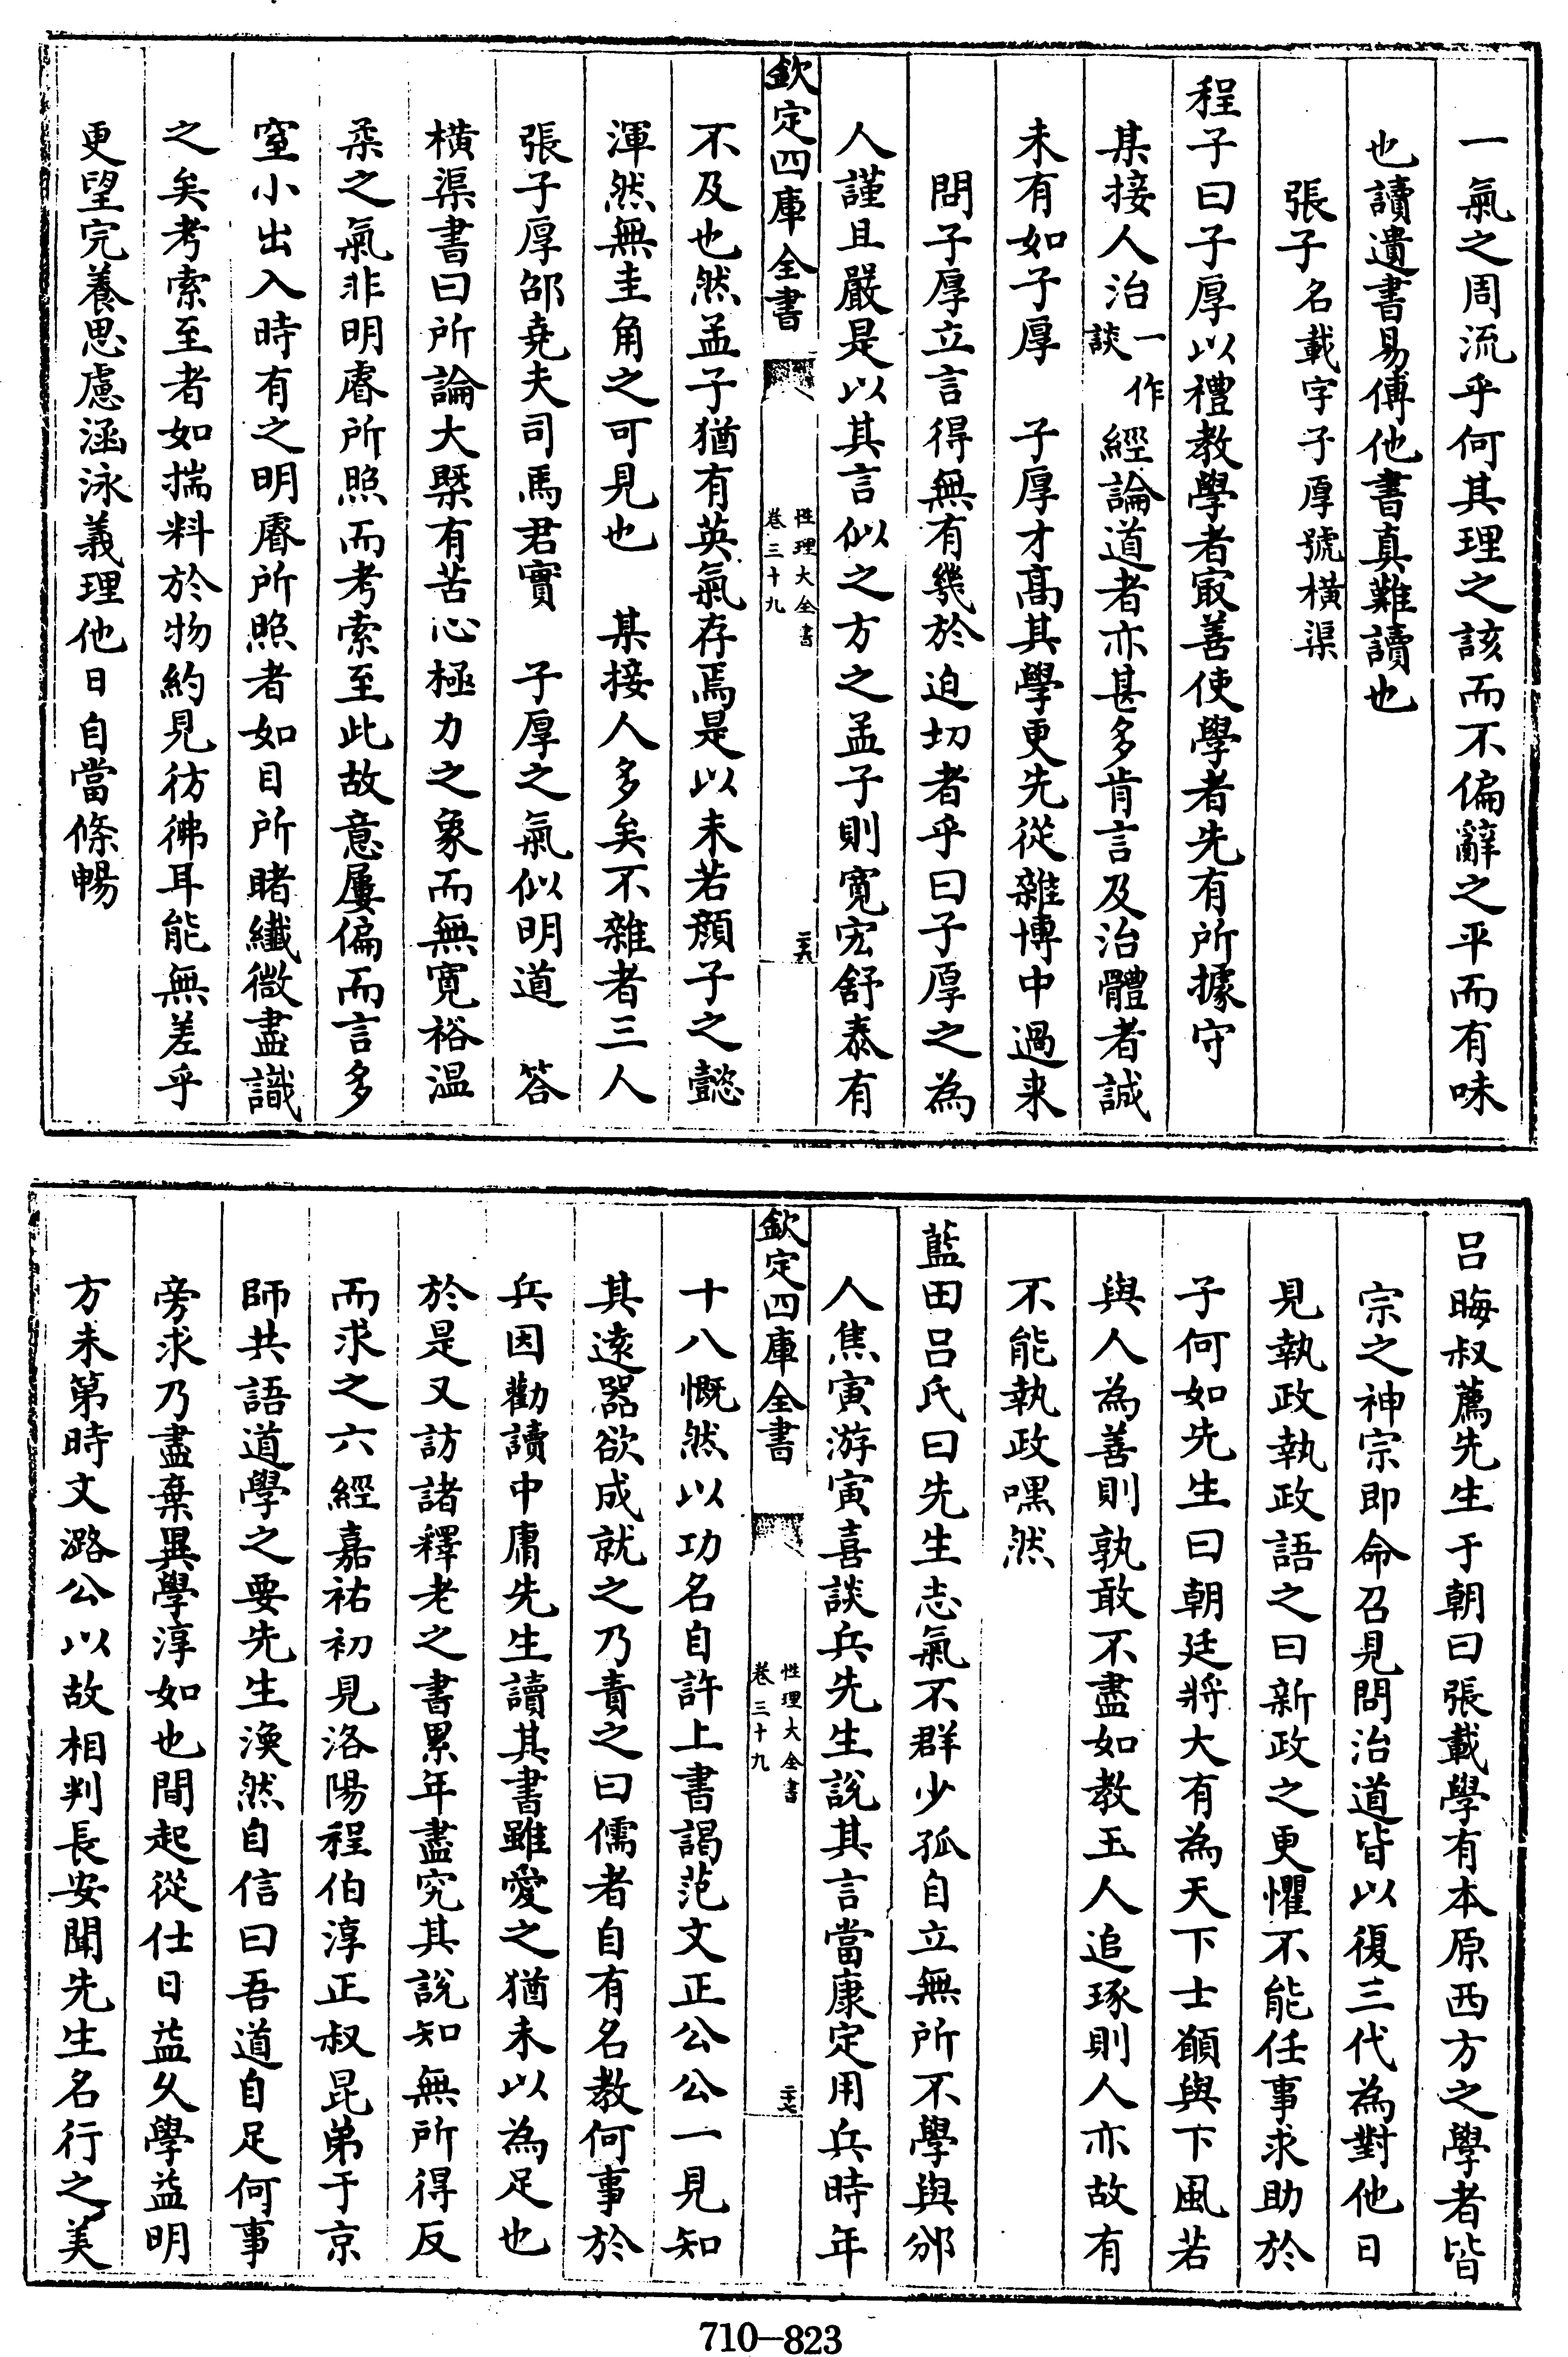 一氣之周流乎何其理之該而不偏辭之平而有味
也讀遺書易傳他書真難讀也
張子名載字子厚號橫渠
程子曰子厚以禮教學者㝡善使學者先有所據守
某接人治一作談經論道者亦甚多肯言及治體者誠
未有如子厚　子厚才高其學更先從雜博中過来
問子厚立言得無有幾於迫切者乎曰子厚之為
人謹且嚴是以其言似之方之孟子則寛宏舒泰有
欽定四庫全書
性理大全書
卷三十九
二十六
不及也然孟子猶有英氣存焉是以未若顔子之懿
渾然無圭角之可見也　某接人多矣不雜者三人
張子厚邵堯夫司馬君實　子厚之氣似明道　答
橫渠書曰所論大槩有苦心極力之象而無寛裕温
柔之氣非明睿所照而考索至此故意屢偏而言多
窒小出入時有之明睿所照者如目所睹纖微盡識
之矣考索至者如揣料於物約見彷彿耳能無差乎
更望完養思慮涵泳義理他日自當條暢
呂晦叔薦先生于朝曰張載學有本原西方之學者皆
宗之神宗即命召見問治道皆以復三代為對他日
見執政執政語之曰新政之更懼不能任事求助於
子何如先生曰朝廷將大有為天下士願與下風若
與人為善則孰敢不盡如教玉人追琢則人亦故有
不能執政嘿然
藍田呂氏曰先生志氣不群少孤自立無所不學與邠
人焦寅游寅喜談兵先生說其言當康定用兵時年
欽定四庫全書
性理大全書
卷三十九
二十七
十八慨然以功名自許上書謁范文正公公一見知
其遠器欲成就之乃責之曰儒者自有名教何事於
兵因勸讀中庸先生讀其書雖愛之猶未以為足也
於是又訪諸釋老之書累年盡究其說知無所得反
而求之六經嘉祐初見洛陽程伯淳正叔昆弟于京
師共語道學之要先生渙然自信曰吾道自足何事
旁求乃盡棄異學淳如也間起從仕日益久學益明
方未第時文潞公以故相判長安聞先生名行之美
710—823